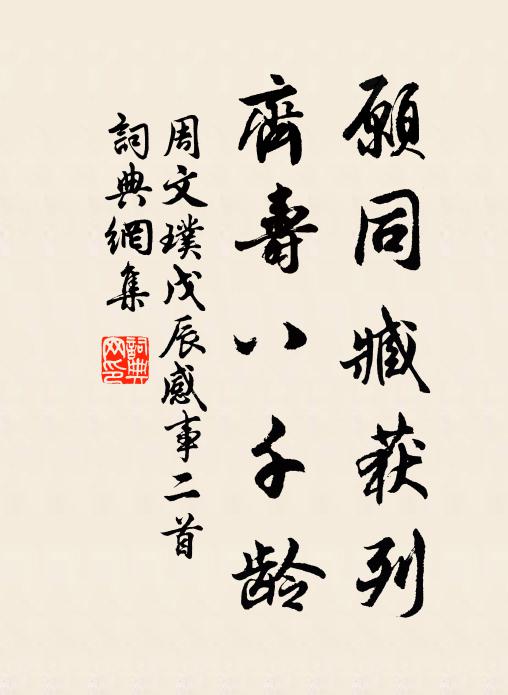 願同臧获列
齊壽八千龄
周文璞戊辰感事二首
詞典網集
詞典
网印